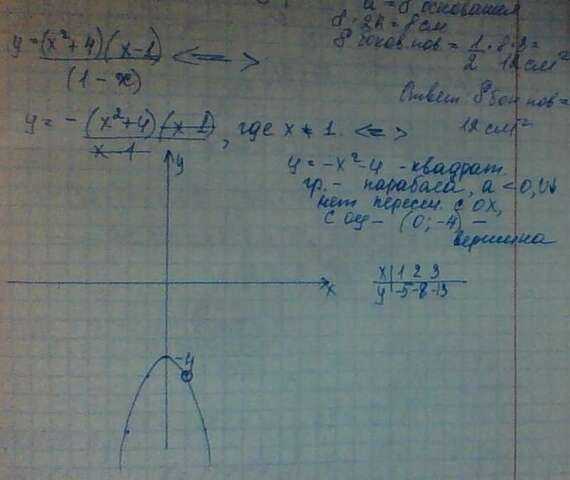 a = 8 основания
P = 2h = 8 см
S боков пов = 1/2 · 8 · 3 =
12 см²
Ответ: S бок пов =
12 см²
y = (x²+4)(x-1) <=>
(1-x)
y = - (x²+4)(x-1) , где x ≠ 1. <=>
x-1
y = -x²-4 - квадрат.
гр. - парабола, a < 0,
нет пересеч. с OX,
с OY - (0; -4) -
вершина
x | 1 2 3
y | -5 -8 -13
y
x
-4